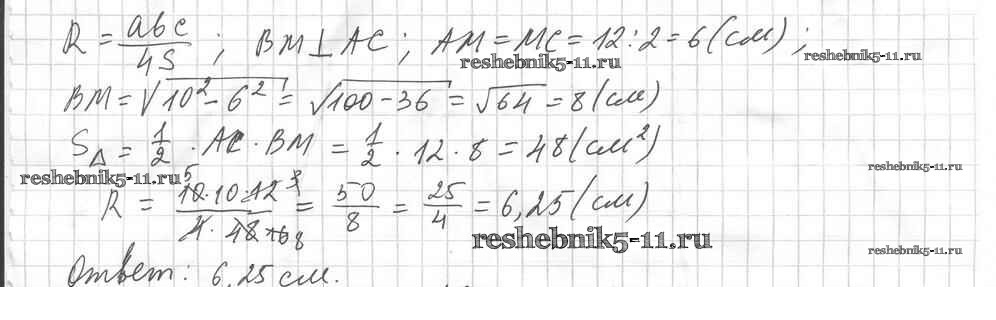 R = abc/4S ; BM ⊥ AC ; AM = MC = 12 : 2 = 6 (см) ;
reshebnik5-11.ru
reshebnik5-11.ru
BM = √10² - 6² = √100 - 36 = √64 = 8 (см)
S△ = 1/2 · AC · BM = 1/2 · 12 · 8 = 48 (см²)
reshebnik5-11.ru
reshebnik5-11.ru
R = 10 · 10 · 12 / 4 · 48 = 50/8 = 25/4 = 6,25 (см)
reshebnik5-11.ru
reshebnik5-11.ru
Ответ: 6,25 см.